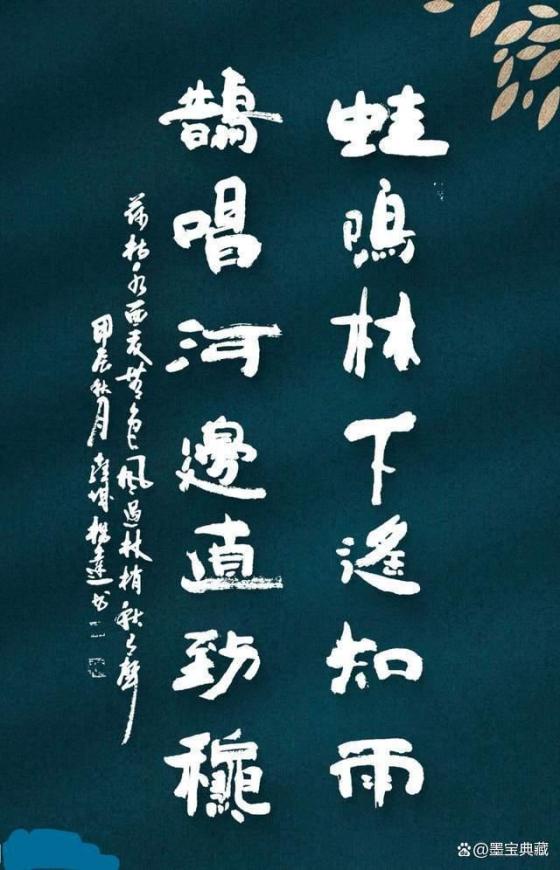 蛙鳴林下遙知雨
鵲唱河邊直勁穐
荷枯水面麦黄色風過林梢秋有聲
甲辰秋月 楊達書
@墨宝典藏